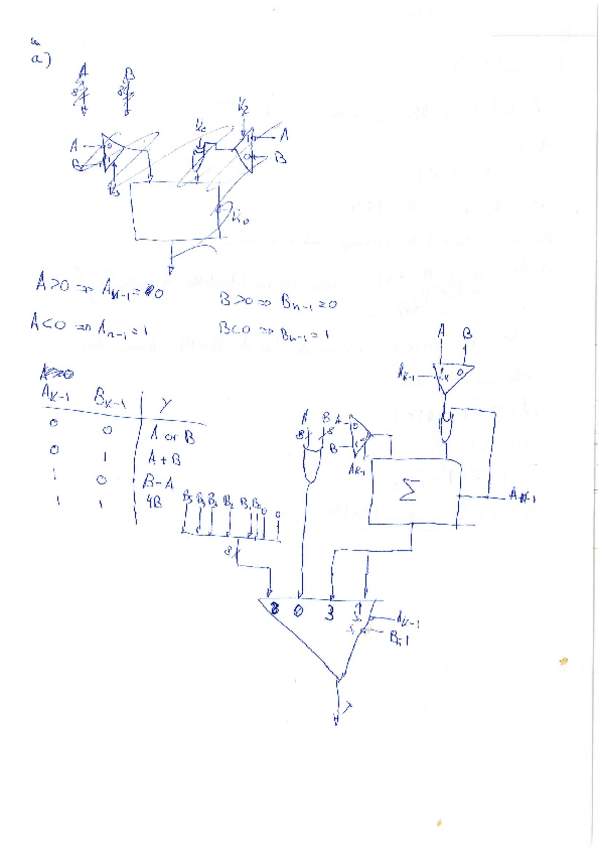 a)
A B
8 8
A 0
B 1
1 A
0 B
A>0 => A_{k-1}=0 B>0 => B_{n-1}=0
A<0 => A_{n-1}=1 B<0 => B_{n-1}=1
A_{k-1} B_{k-1} Y
0 0 A or B
0 1 A+B
1 0 B-A
1 1 4B
A B
A_{k-1} 1 0
A B A
8 8
B
A_{k-1}
Σ
A_{k-1}
B_5 B_4 B_3 B_2 B_1 B_0 0 0
8
0 3 1
A_{k-1}
Y